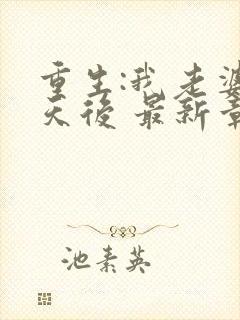 重生:我老婆
天後 最新章
池素英